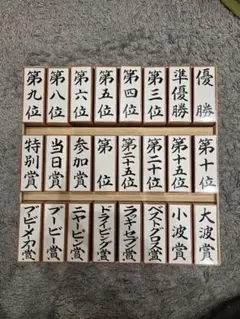 優勝
準優勝
第三位
第四位
第五位
第六位
第八位
第九位
第十位
第十五位
第二十位
第二十五位
第 位
参加賞
当日賞
特別賞
大波賞
小波賞
ベストグロス賞
ラッキーセブン賞
ドライビング賞
ニヤピン賞
ブービー賞
ブービーメーカー賞